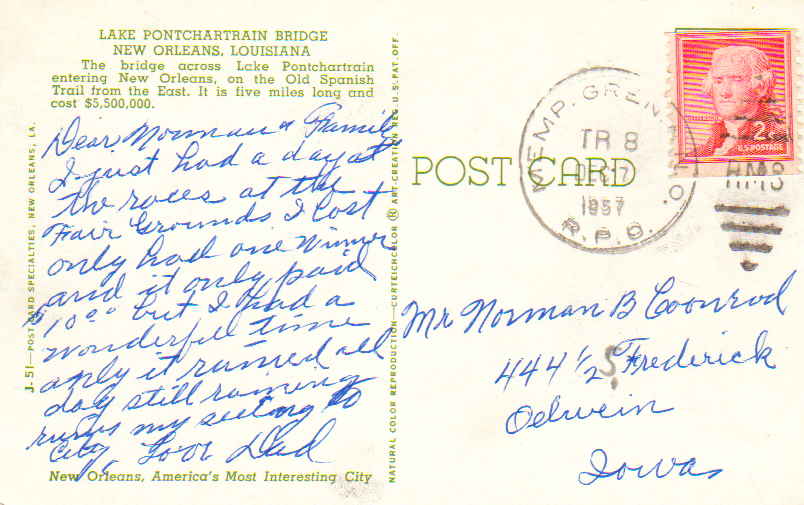 LAKE PONTCHARTRAIN BRIDGE
NEW ORLEANS, LOUISIANA
The bridge across Lake Pontchartrain
entering New Orleans, on the Old Spanish
Trail from the East. It is five miles long and
cost $5,500,000.
Dear Norman & Family
I just had a day at
the races at the
Fair Grounds I lost
only had one winner
and it only paid
$10.00 but I had a
wonderful time
only it rained all
day still raining
ruins my seeing
City
Love Dad
New Orleans, America's Most Interesting City
J-51—POST CARD SPECIALTIES, NEW ORLEANS, LA.
NATURAL COLOR REPRODUCTION—CURTEICHCOLOR ® ART-CREATION REG U.S. PAT. OFF.
POST CARD
MEMP. GREN.
TR 8
DEC 17
1957
R.P.O.
RMS
2¢
U.S. POSTAGE
Mr Norman B Coonrod
444 1/2 S. Frederick
Oelwein
Iowa